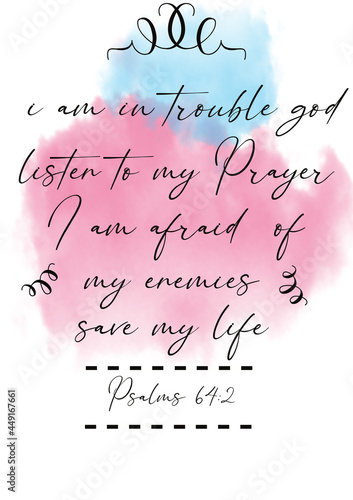 i am in trouble god
listen to my Prayer
I am afraid of
my enemies
save my life
Psalms 64:2
Adobe Stock | #449167661